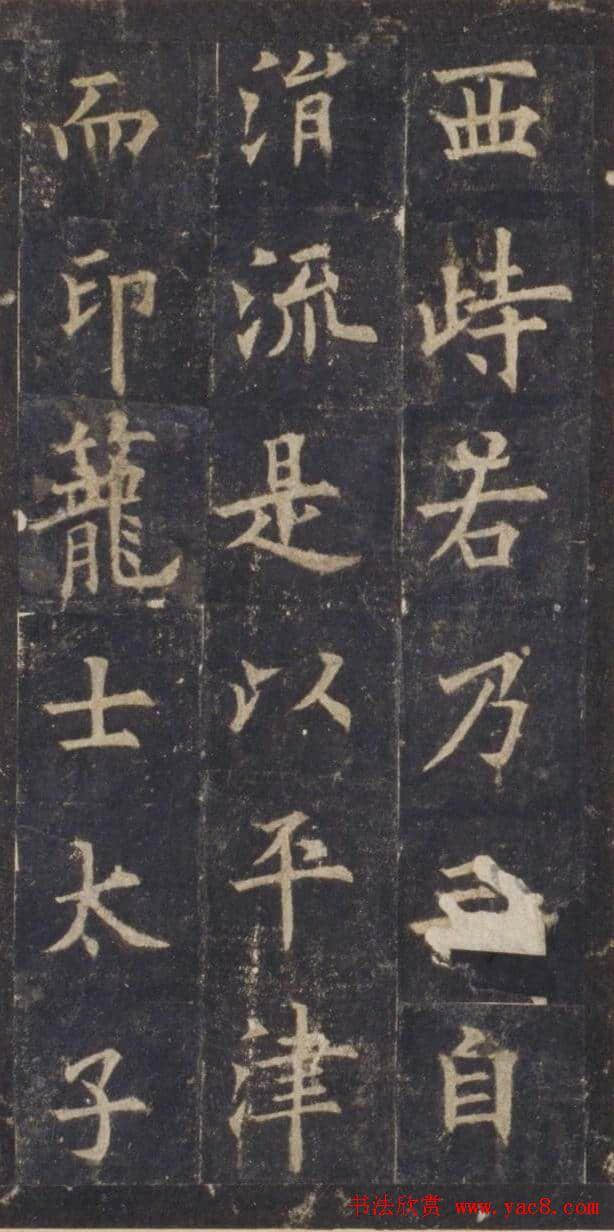 西峙若乃自
涓流是以平津
而印籠士太子
书法欣赏 www.yac8.com